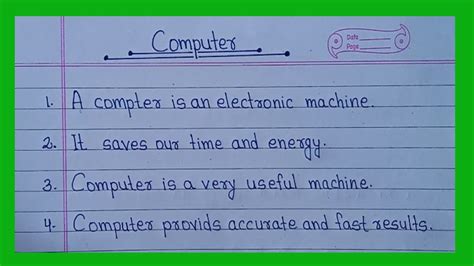 Computer
Date
Page
1. A compter is an electronic machine.
2. It saves our time and energy.
3. Computer is a very useful machine.
4. Computer provids accurate and fast results.